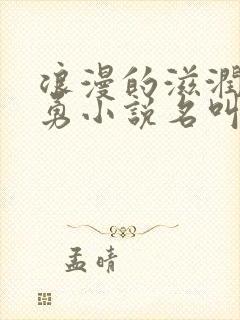 浪漫的滋润
勇小说名叫
孟晴